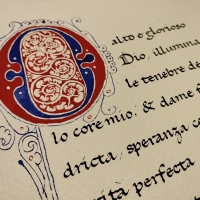 O alto e glorioso
Dio, illumina
le tenebre de
lo core mio; & dame
dricta, speranza
perfecta